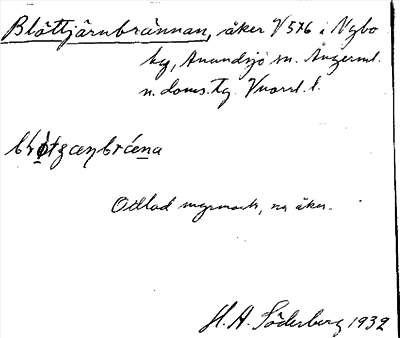 Blåttjärnbrännan, åker V 576 i Nybo
by, Anundsjö sn. Ångerml.
n. doms. tg. Vnorrl. l.
Odlad myrmark, nu åker.
H. A. Söderberg 1932